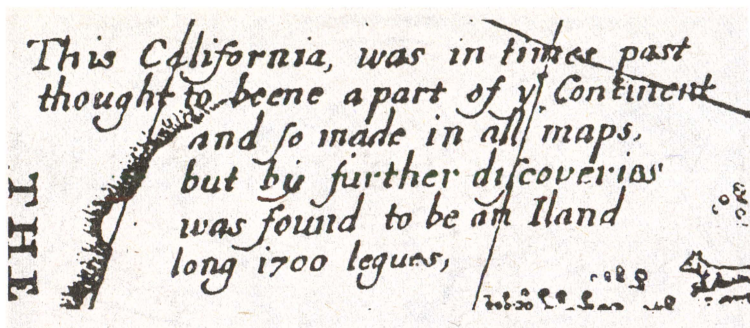 This California, was in times past
thought to beene a part of yᵉ Continent
and ſo made in all maps,
but by further diſcoveries
was found to be an Iland
long 1700 legues,
THE